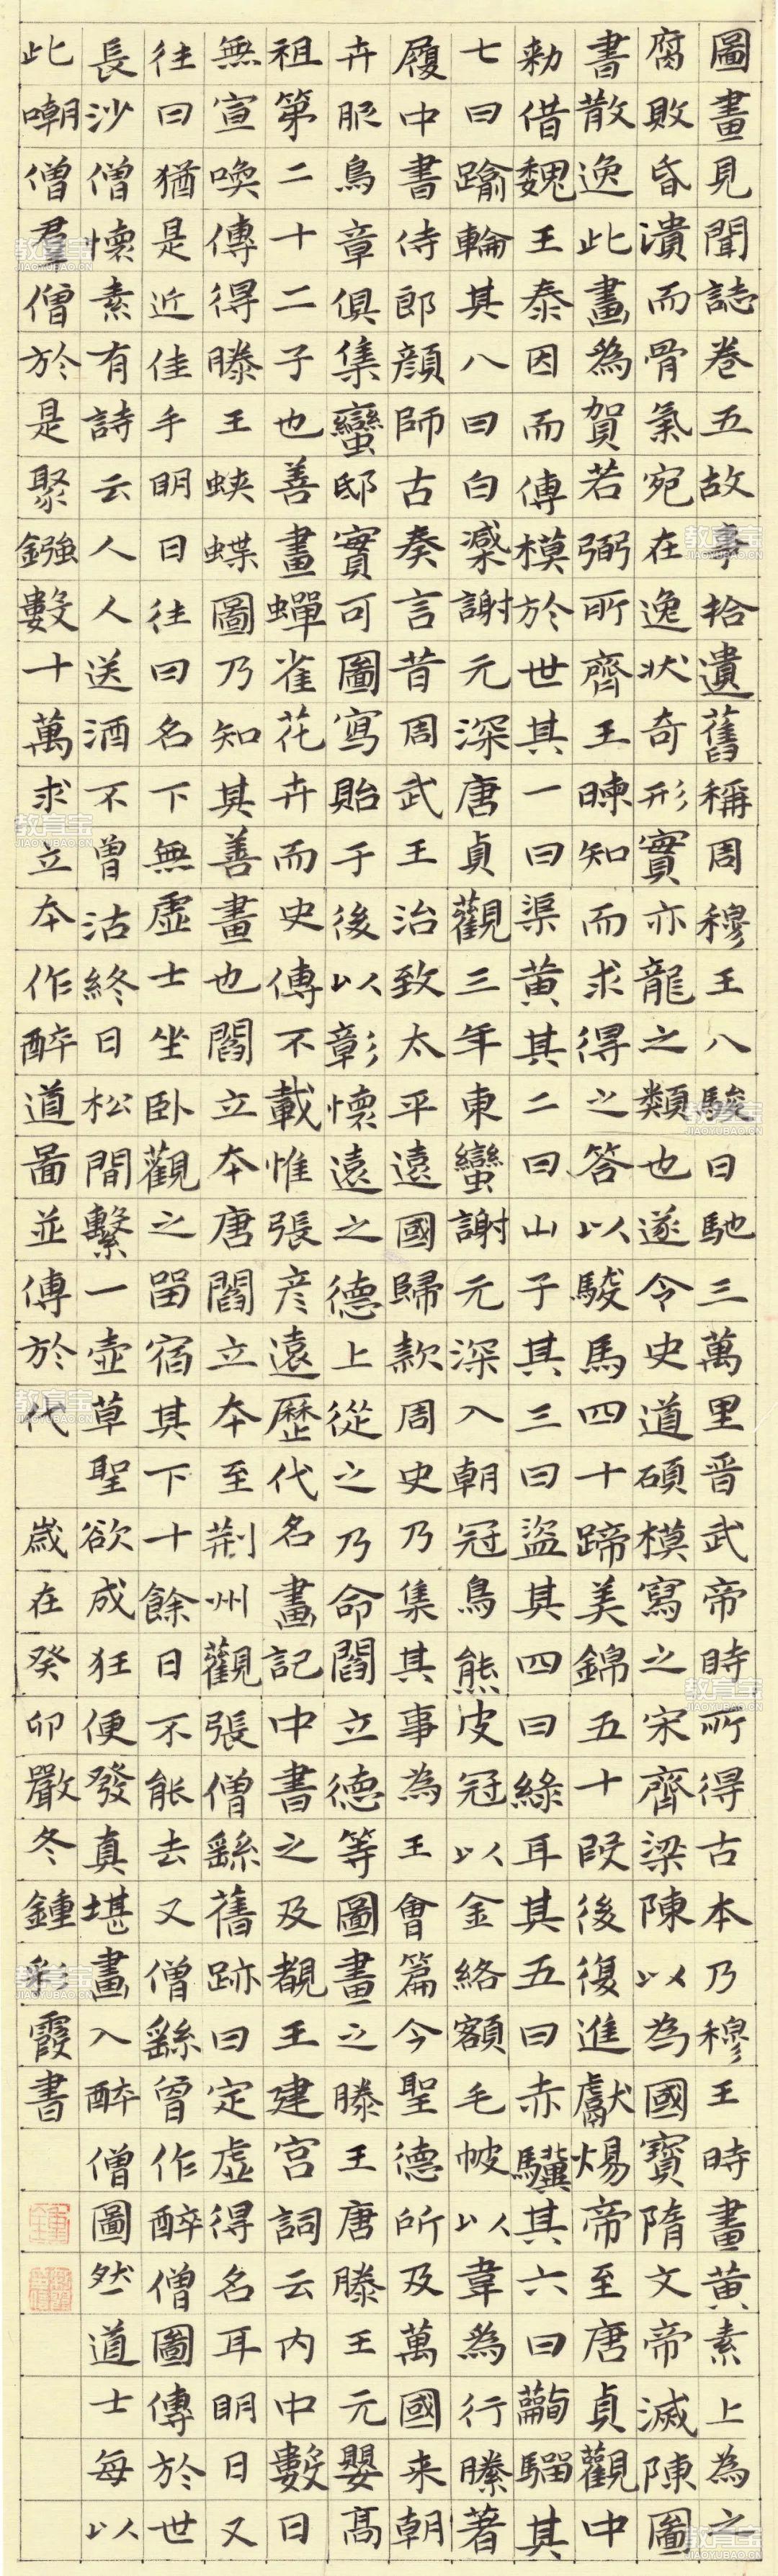 圖畫見聞誌卷五故事拾遺舊稱周穆王八駿日馳三萬里晉武帝時所得古本乃穆王時畫黃素上為之
腐敗昏潰而骨氣宛在逸狀奇形實亦龍之類也遂令史道碩模寫之宋齊梁陳以為國寶隋文帝滅陳圖
書散逸此畫為賀若弼所齊王暕知而求得之答以駿馬四十蹄美錦五十段後復進獻煬帝至唐貞觀中
勑借魏王泰因而傳模於世其一曰渠黃其二曰山子其三曰盜其四曰綠耳其五曰赤驥其六曰騮其
七曰踰輪其八曰白滐謝元深唐貞觀三年東蠻謝元深入朝冠鳥熊皮冠以金絡額毛帔以韋為行縢著
履中書侍郎顏師古奏言昔周武王治致太平遠國歸款周史乃集其事為王會篇今聖德所及萬國来朝
卉服鳥章俱集蠻邸實可圖寫貽于後以彰懷遠之德上從之乃命閻立德等圖畫之滕王唐滕王元嬰高
祖第二十二子也善畫蟬雀花卉而史傳不載惟張彥遠歷代名畫記中書之及覩王建宮詞云内中數日
無宣喚傳得滕王蛺蝶圖乃知其善畫也閻立本唐閻立本至荆州觀張僧繇舊跡曰定虛得名耳明日又
往曰猶是近佳手明日往曰名下無虛士坐卧觀之留宿其下十餘日不能去又僧繇曾作醉僧圖傳於世
長沙僧懷素有詩云人人送酒不曾沽終日松間繫一壺草聖欲成狂便發真堪畫入醉僧圖然道士每以
此嘲僧羣僧於是聚鏹數十萬求立本作醉道啚並傳於代 歲在癸卯嚴冬鍾彩霞書